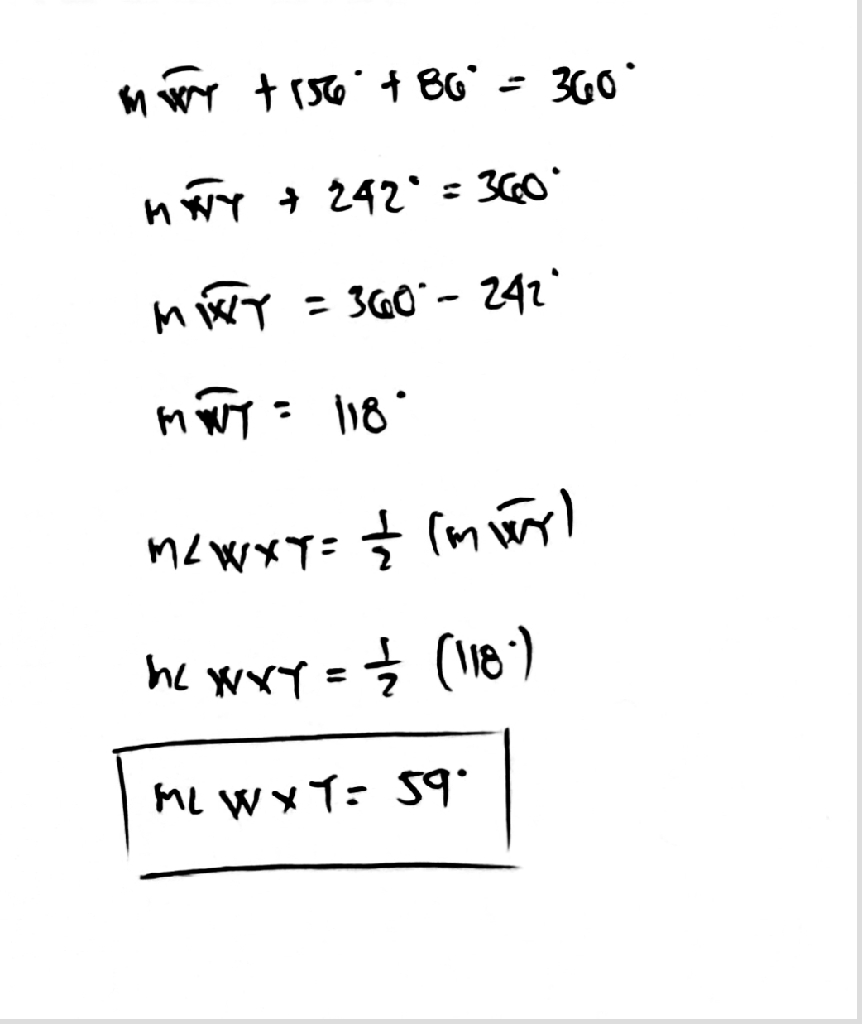 m WY + 156° + 86° = 360°
m WY + 242° = 360°
m WY = 360° - 242°
m WY = 118°
m∠WXY = 1/2 (m WY)
m∠WXY = 1/2 (118°)
m∠WXY = 59°